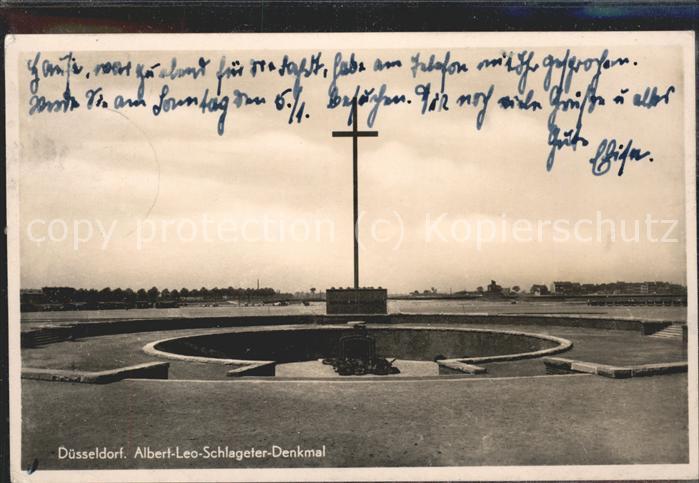 Hause, war zu abend für die Stadt, habe am Telefon mit Ihr gesprochen.
Werde Sie am Sonntag den 5./1. Besuchen. Bis noch viele Grüße u alles
Gute
copy protection (c) Kopierschutz
Düsseldorf. Albert-Leo-Schlageter-Denkmal